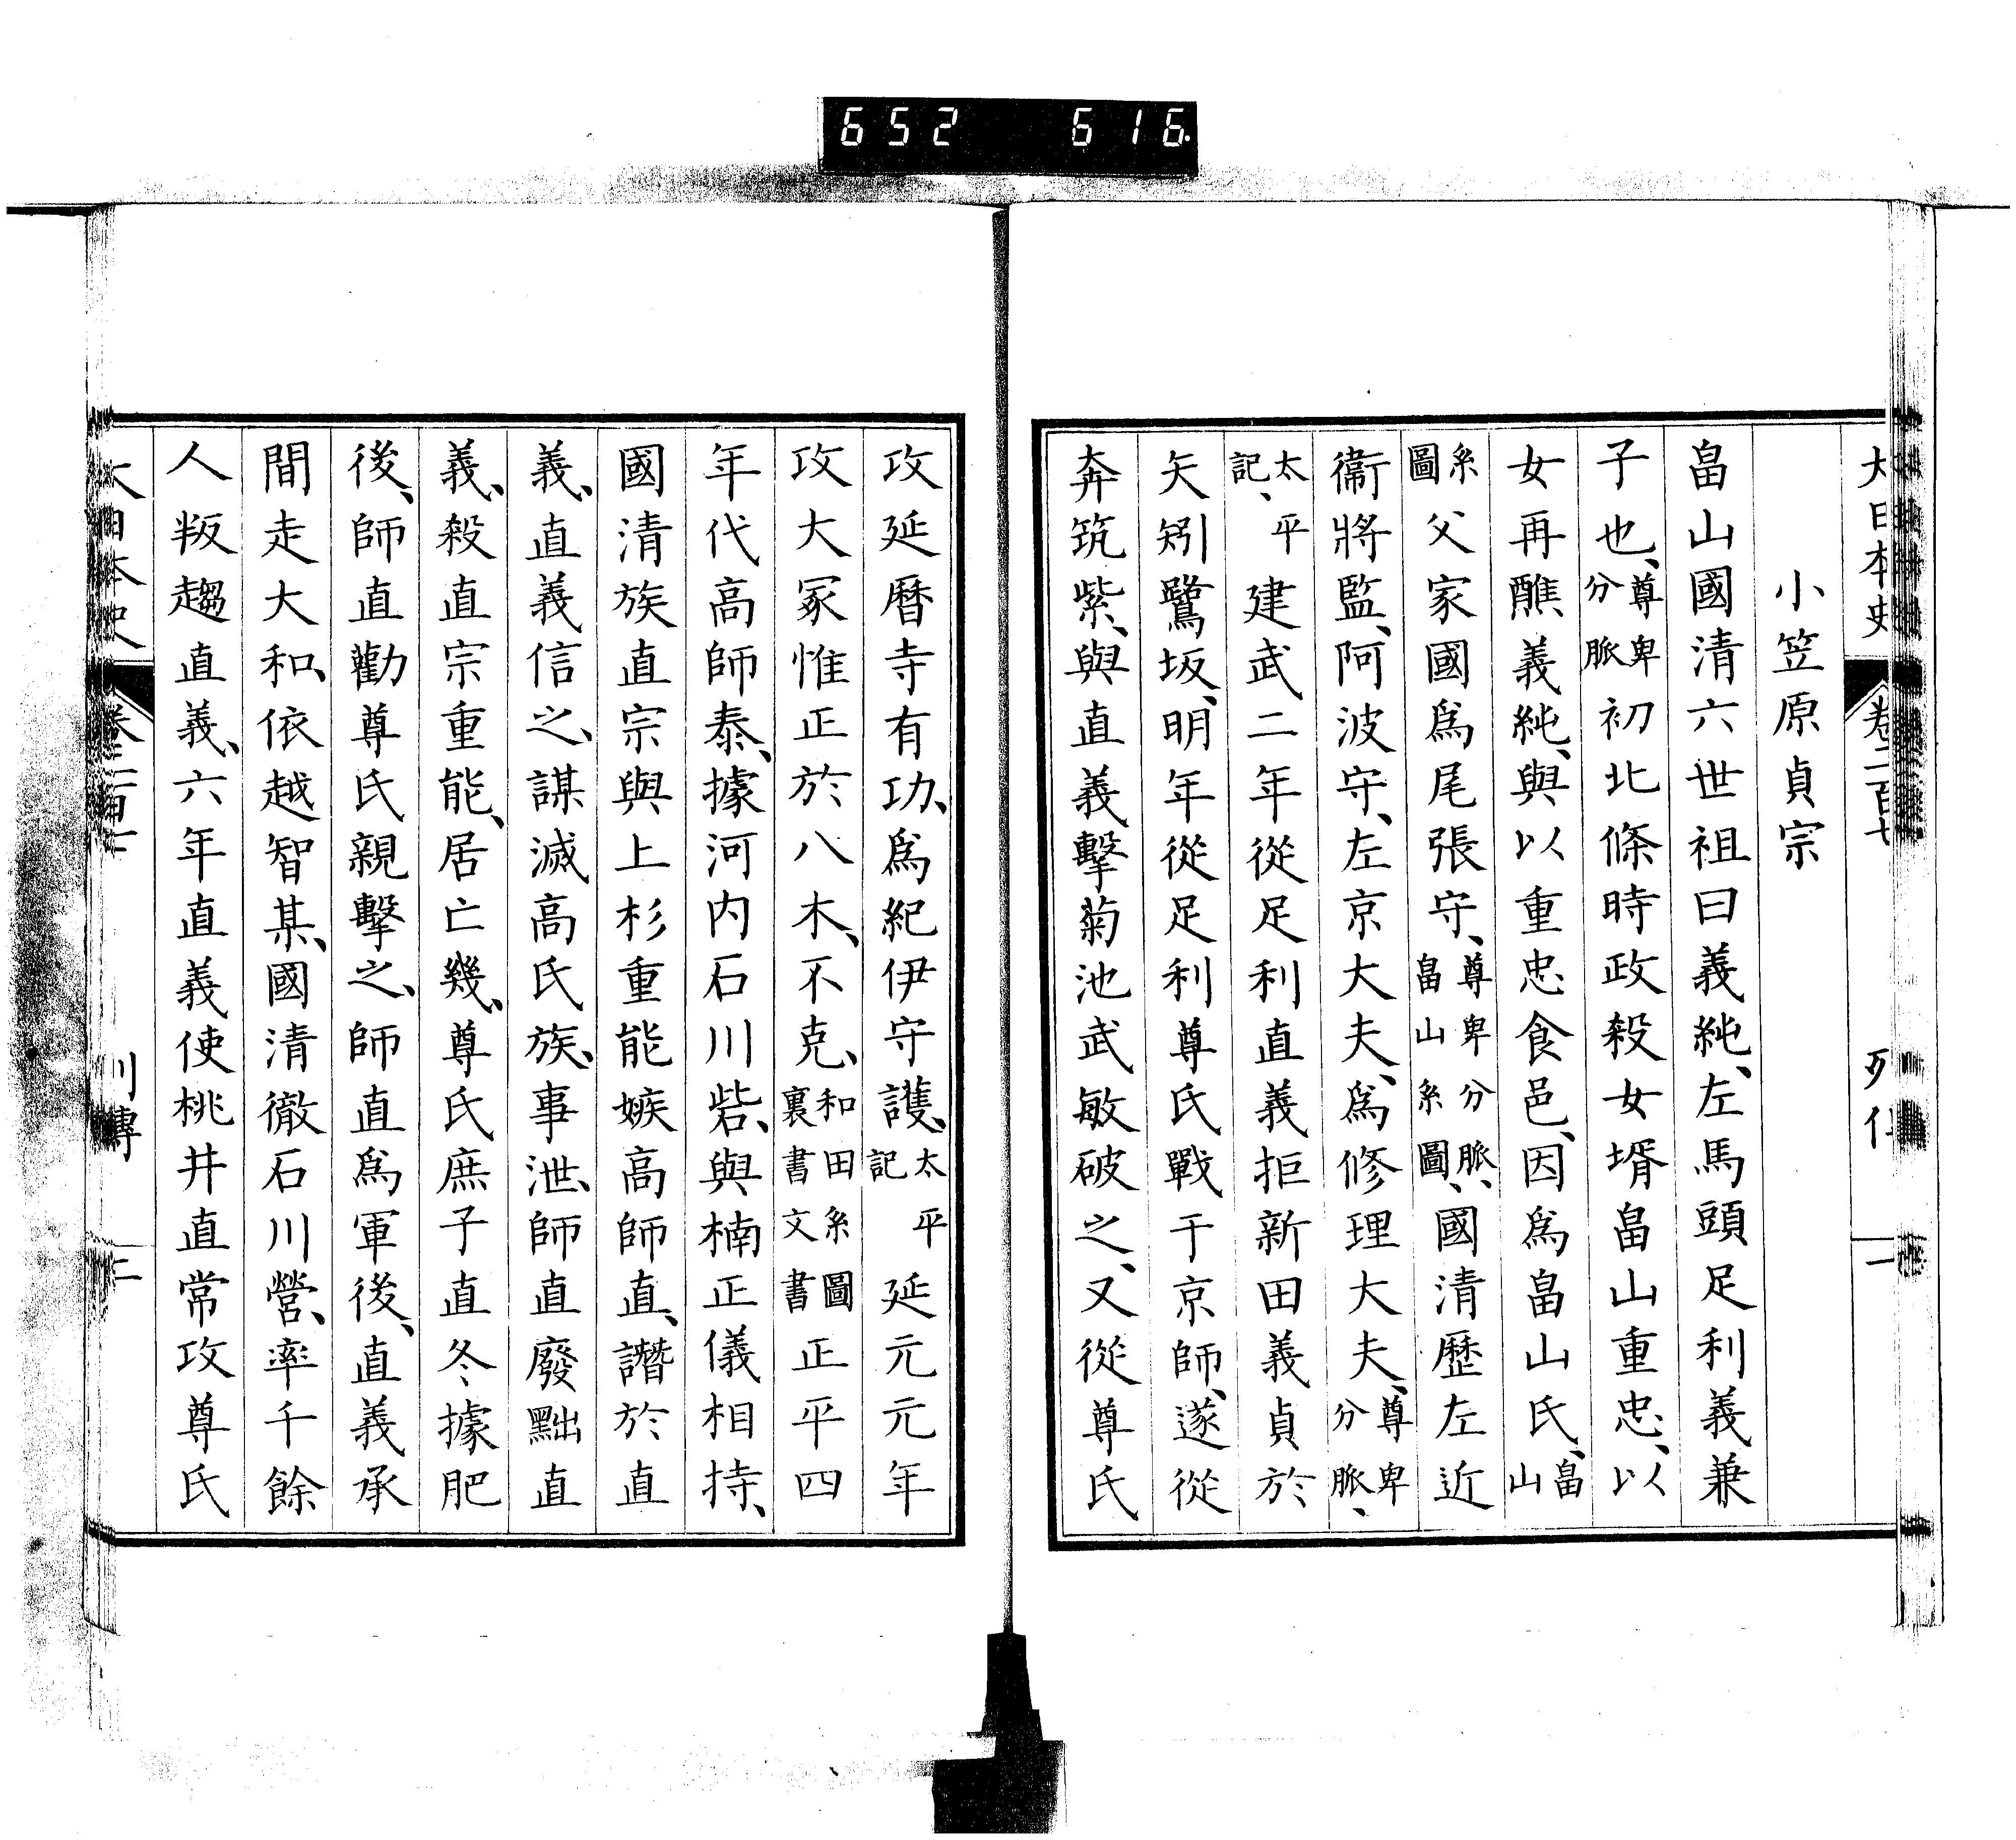 652 616.
大日本史 卷二百七 列傳 二
小笠原貞宗
畠山國清六世祖曰義純、左馬頭足利義兼
子也、尊卑分脈初北條時政殺女壻畠山重忠、以
女再醮義純、與以重忠食邑、因爲畠山氏、畠山
系圖父家國爲尾張守、尊卑分脈、畠山系圖、國清歷左近
衞將監、阿波守、左京大夫、爲修理大夫、尊卑分脈、
太平記、建武二年從足利直義拒新田義貞於
矢矧鷺坂、明年從足利尊氏戰于京師、遂從
奔筑紫、與直義擊菊池武敏破之、又從尊氏
攻延曆寺有功、爲紀伊守護、太平記延元元年
攻大冢惟正於八木、不克、和田系圖裏書文書正平四
年代高師泰、據河内石川砦、與楠正儀相持、
國清族直宗與上杉重能嫉高師直、譖於直
義、直義信之、謀滅高氏族、事泄、師直廢黜直
義、殺直宗重能、居亡幾、尊氏庶子直冬據肥
後、師直勸尊氏親擊之、師直爲軍後、直義承
間走大和、依越智某、國清徹石川營、率千餘
人叛趨直義、六年直義使桃井直常攻尊氏
大日本史 卷二百七 列傳 三